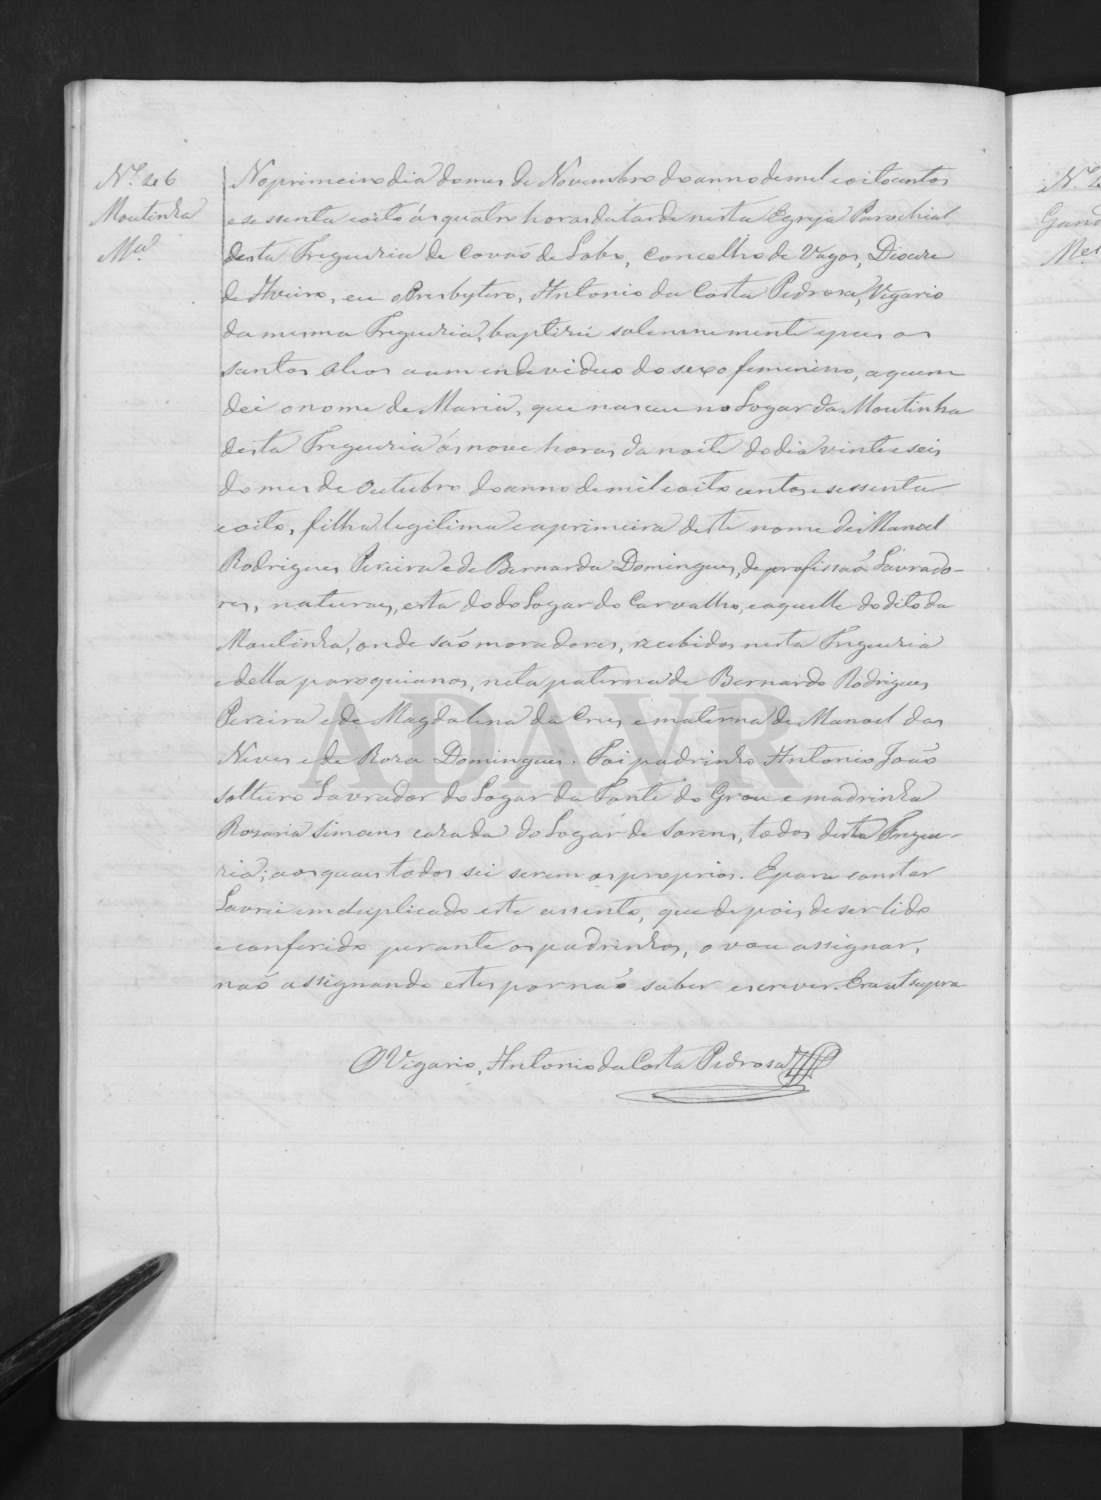 Nº 26
Moutinha
Mª
No primeiro dia do mes de Novembro do anno de mil e oito centos
e sessenta e oito ás quatro horas da tarde nesta Egreja Parochial
desta Freguezia de Covaõ de Lobo, Concelho de Vagos, Diocese
de Aveiro, eu o Presbytero, Antonio da Costa Pedrosa, Vigario
da mesma Freguezia, baptizei solemnemente e puz os
santos oleos a um individuo do sexo feminino, a quem
dei o nome de Maria, que nasceu no Logar da Moutinha
desta Freguezia ás nove horas da noite do dia vinte e seis
do mes de Outubro do anno de mil e oito centos e sessenta
e oito, filha legitima e a primeira deste nome de Manoel
Rodrigues Pereira e de Bernarda Domingues, de profissaõ Lavrado-
res, naturaes, esta do do Logar do Carvalho, e aquelle do dito da
Moutinha, onde saõ moradores, recebidos nesta Freguezia
e della paroquianos, neta paterna de Bernardo Rodrigues
Pereira e de Magdalena da Cruz e materna de Manoel das
Neves e de Roza Domingues. Foi padrinho Antonio Joaõ
solteiro Lavrador do Logar da Fonte do Grou e madrinha
Rozaria Simoens cazada do Logar de Sorens, todos desta Fregue-
zia; aos quaes todos sei serem os proprios. E para constar
Lavrei em duplicado este assento, que depois de ser lido
e conferido perante os padrinhos, o vou assignar,
naõ assignando estes por naõ saber escrever. Era ut supra
O Vigario, Antonio da Costa Pedrosa
ADAVR
Nº 2
Gand